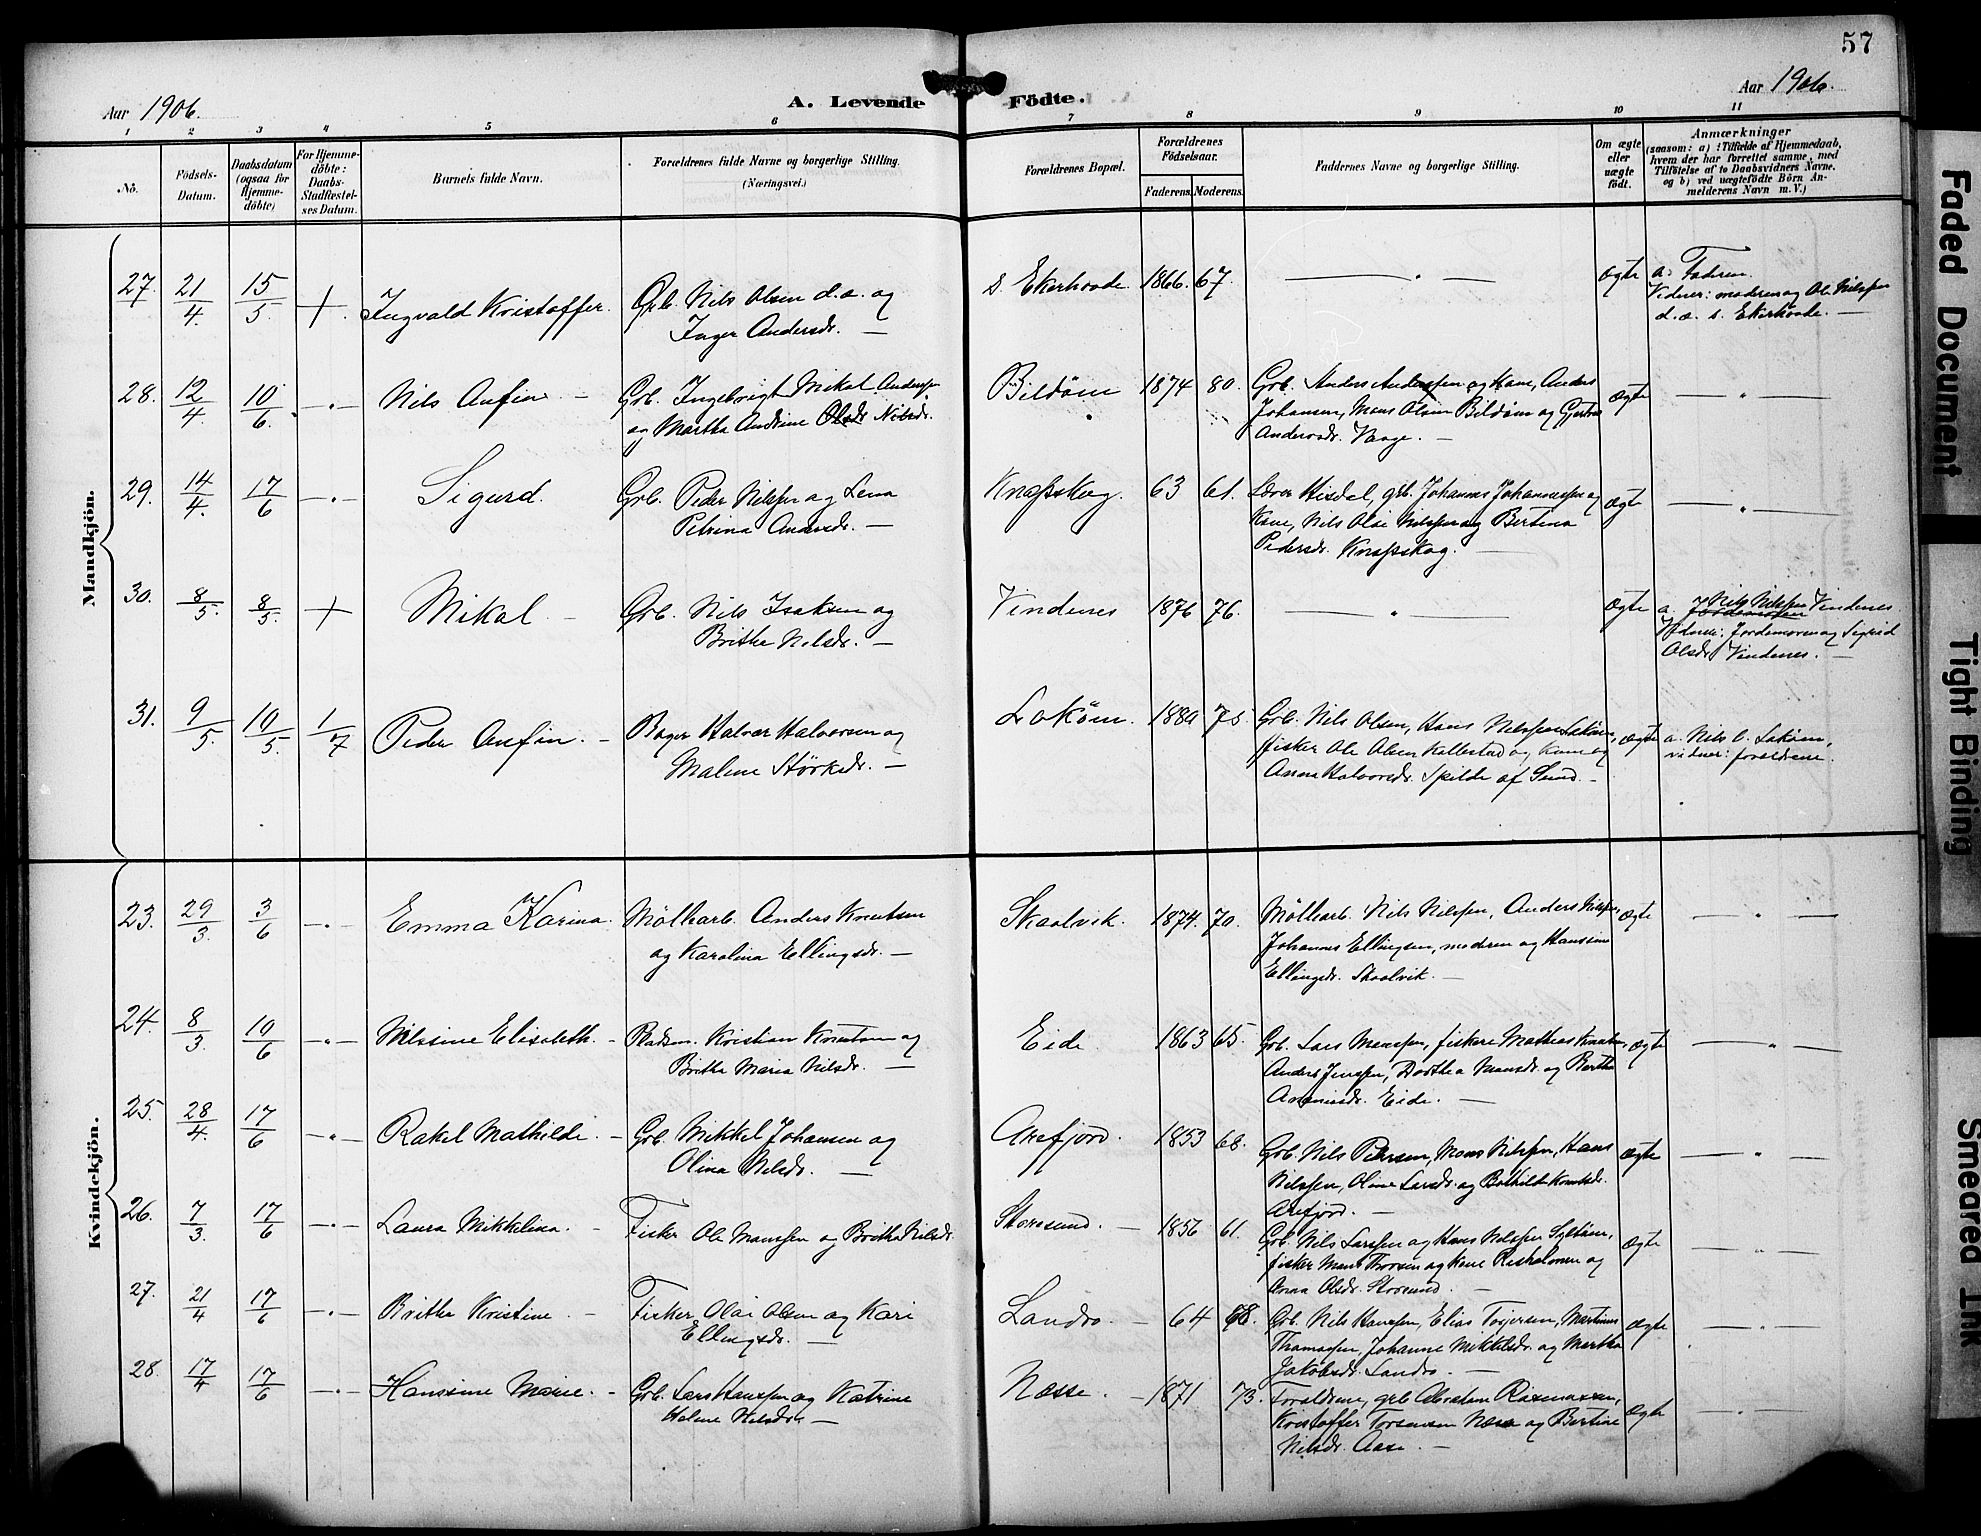 57
Aar 1906. A. Levende Födte. Aar 1906.
1 2 3 4 5 6 7 8 9 10 11
No.
Födsels-Datum.
Daabsdatum (ogsaa for Hjemme-döbte)
For Hjemme-döbte: Daabs-Stadfæstel-ses Datum.
Barnets fulde Navn.
Forældrenes fulde Navne og borgerlige Stilling.
(Næringsvei.)
Forældrenes Bopæl.
Forældrenes Födselsaar.
Faderens. Moderens.
Faddernes Navne og borgerlige Stilling.
Om ægte eller uægte födt.
Anmærkninger
(saasom: a) i Tilfælde af Hjemmedaab,
hvem der har forrettet samme, med
Tilföielse af to Daabsvidners Navne,
og b) ved uægtefödte Börn An-
melderens Navn m. V.)
Mandkjön.
27. 21/4. 15/5. + Ingvald Kristoffer. Grb. Nils Olsen d.a. og
Inger Andersdr. —
s. Ekerhovde 1866. 67. — " — ægte a. Faderen.
Vidner: moderen og Ole Nilssen
d.a. s. Ekerhovde. —
28. 12/4 10/6. — " — Nils Anfin — Grb. Ingebrigt Mikal Anderssen
og Martha Andrine Olsdr. Nilsdr.
Bildöen 1874 80. Grb. Anders Anderssen og Kone, Anders
Johansen, Mons Olsen Bildöen og Gjertrud
Andersdr. Vaage. —
ægte — " —
29. 14/4. 17/6 — " — Sigurd. Grb. Peder Nilssen og Lena
Petrina Andersdr. —
Knapskog. 63 61. Lærer Hisdal, grb. Johannes Johannessen og
Kone, Nils Olai Nilssen og Bertina
Pedersdr. Knapskog. —
ægte — " —
30. 8/5. 8/5. + Mikal — Grb. Nils Isaksen og
Brithe Nilsdr. —
Vindenes 1876 76. — " — ægte a. Nils Nilssen Vindenes
Vidner: Jordemoren og Sigrid
Olsdr. Vindenes. —
31. 9/5. 10/5 1/7 Peder Anfin. — Bager Halvor Halvorsen og
Malene Störksdr. —
Loköen. 1880 75. Grb. Nils Olsen, Hans Nilssen Loköen,
fisker Ole Olsen Kallestad og Kone og
Anna Halvorsdr. Spilde af Sund. —
ægte a. Nils O. Loköen,
vidner: forældrene.
Kvindekjön.
23. 29/3. 3/6 — " — Emma Karina. Möllearb. Anders Knutsen
og Karolina Ellingsdr. —
Skaalvik. 1874. 70. Möllearb. Nils Nilssen, Anders Nilssen,
Johannes Ellingsen, moderen og Hanssine
Ellingsdr. Skaalvik. —
ægte — " —
24. 8/3. 10/6 — " — Nilssine Elisabeth. — Pladsm. Kristian Knutsen og
Brithe Maria Nilsdr. —
Eide 1863 65. Grb. Lars Monssen, fiskere Mathias Knutsen,
Anders Jenssen, Dorthea Monsdr. og Bertha
Eide. —
ægte — " —
25. 28/4. 17/6 — " — Rakel Mathilde. — Grb. Mikkel Johansen og
Olina Nilsdr. —
Arefjord. 1853 68. Grb. Nils Petersen, Mons Nilssen, Hans
Nilssen, Oline Larsdr. og Bothilde Knutsdr.
Arefjord. —
ægte — " —
26. 7/3. 17/6 — " — Laura Mikkelina. — Fisker Ole Monssen og Brithe Nilsdr.
Storesund. — 1856 61. Grb. Nils Larssen og Hans Nilssen Syltöen,
fisker Mons Thorsen og Kone Risholmen og
Anna Olsdr. Storesund. —
ægte — " —
27. 21/4 17/6 — " — Brithe Kristine — Fisker Olai Olsen og Kari
Ellingsdr. —
Landro — 64 68. Grb. Nils Hanssen, Elias Torjersen, Martinus
Thomassen, Johanne Mikkelsdr. og Martha
Jakobsdr. Landro. —
ægte — " —
28. 17/4 17/6 — " — Hanssine Marie. — Grb. Lars Hanssen og Katrine
Malene Nilsdr. —
Næsse. — 1871 73. Forældrene, grb. Abraham Rasmussen,
Kristoffer Næsse og Bertine
Nilsdr. Aase. —
ægte — " —
Faded Document
Tight Binding
Smeared Ink